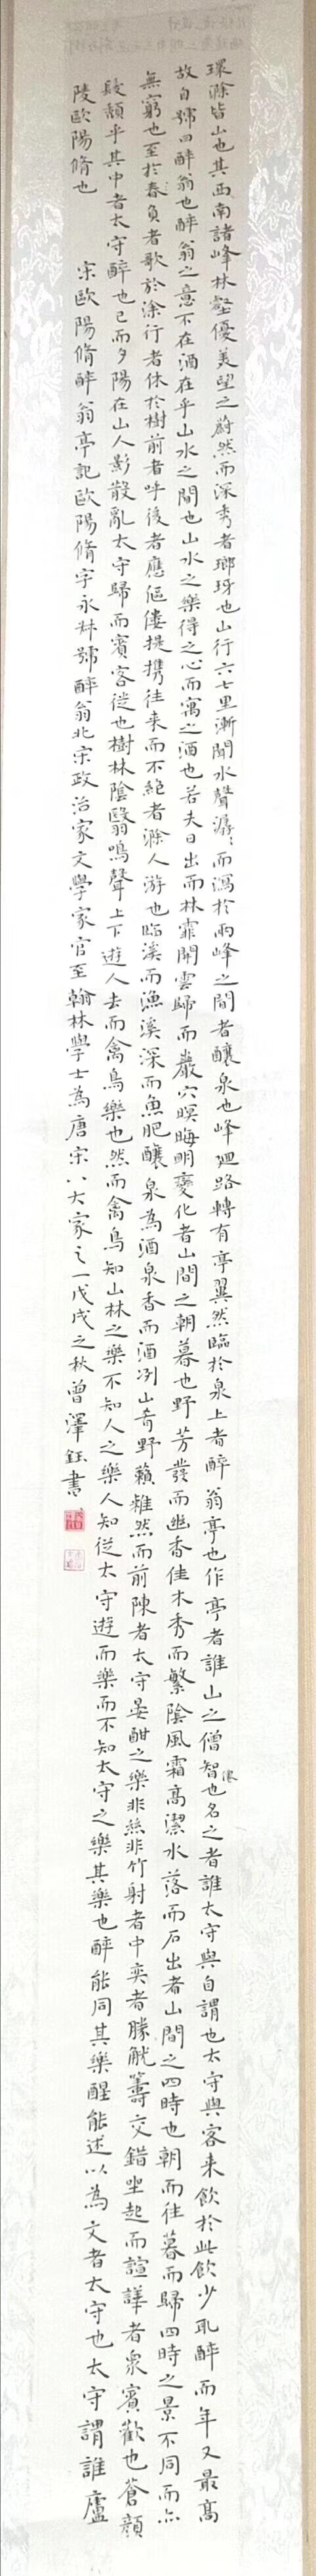 環滁皆山也其西南諸峰林壑優美望之蔚然而深秀者瑯玡也山行六七里漸聞水聲潺〻而瀉於兩峰之間者釀泉也峰廻路轉有亭翼然臨於泉上者醉翁亭也作亭者誰山之僧智僊也名之者誰太守與自謂也太守與客来飲於此飲少輒醉而年又最高
故自號曰醉翁也醉翁之意不在酒在乎山水之間也山水之樂得之心而寓之酒也若夫日出而林霏開雲歸而巖穴暝晦明變化者山間之朝暮也野芳發而幽香佳木秀而繁陰風霜高潔水落而石出者山間之四時也朝而往暮而歸四時之景不同而亦
無窮也至於春負者歌於涂行者休於樹前者呼後者應傴僂提攜往来而不絶者滁人游也臨溪而漁溪深而魚肥釀泉為酒泉香而酒洌山肴野蔌雜然而前陳者太守宴酣之樂非絲非竹射者中奕者勝觥籌交錯坐起而諠譁者衆賓歡也蒼顔
髮頽乎其中者太守醉也已而夕陽在山人影散亂太守歸而賓客從也樹林陰翳鳴聲上下遊人去而禽鳥樂也然而禽鳥知山林之樂不知人之樂人知從太守遊而樂而不知太守之樂其樂也醉能同其樂醒能述以為文者太守也太守謂誰廬
陵歐陽脩也 宋歐陽脩醉翁亭記歐陽脩字永叔號醉翁北宋政治家文學家官至翰林學士為唐宋八大家之一戊戌之秋曾澤鈺書